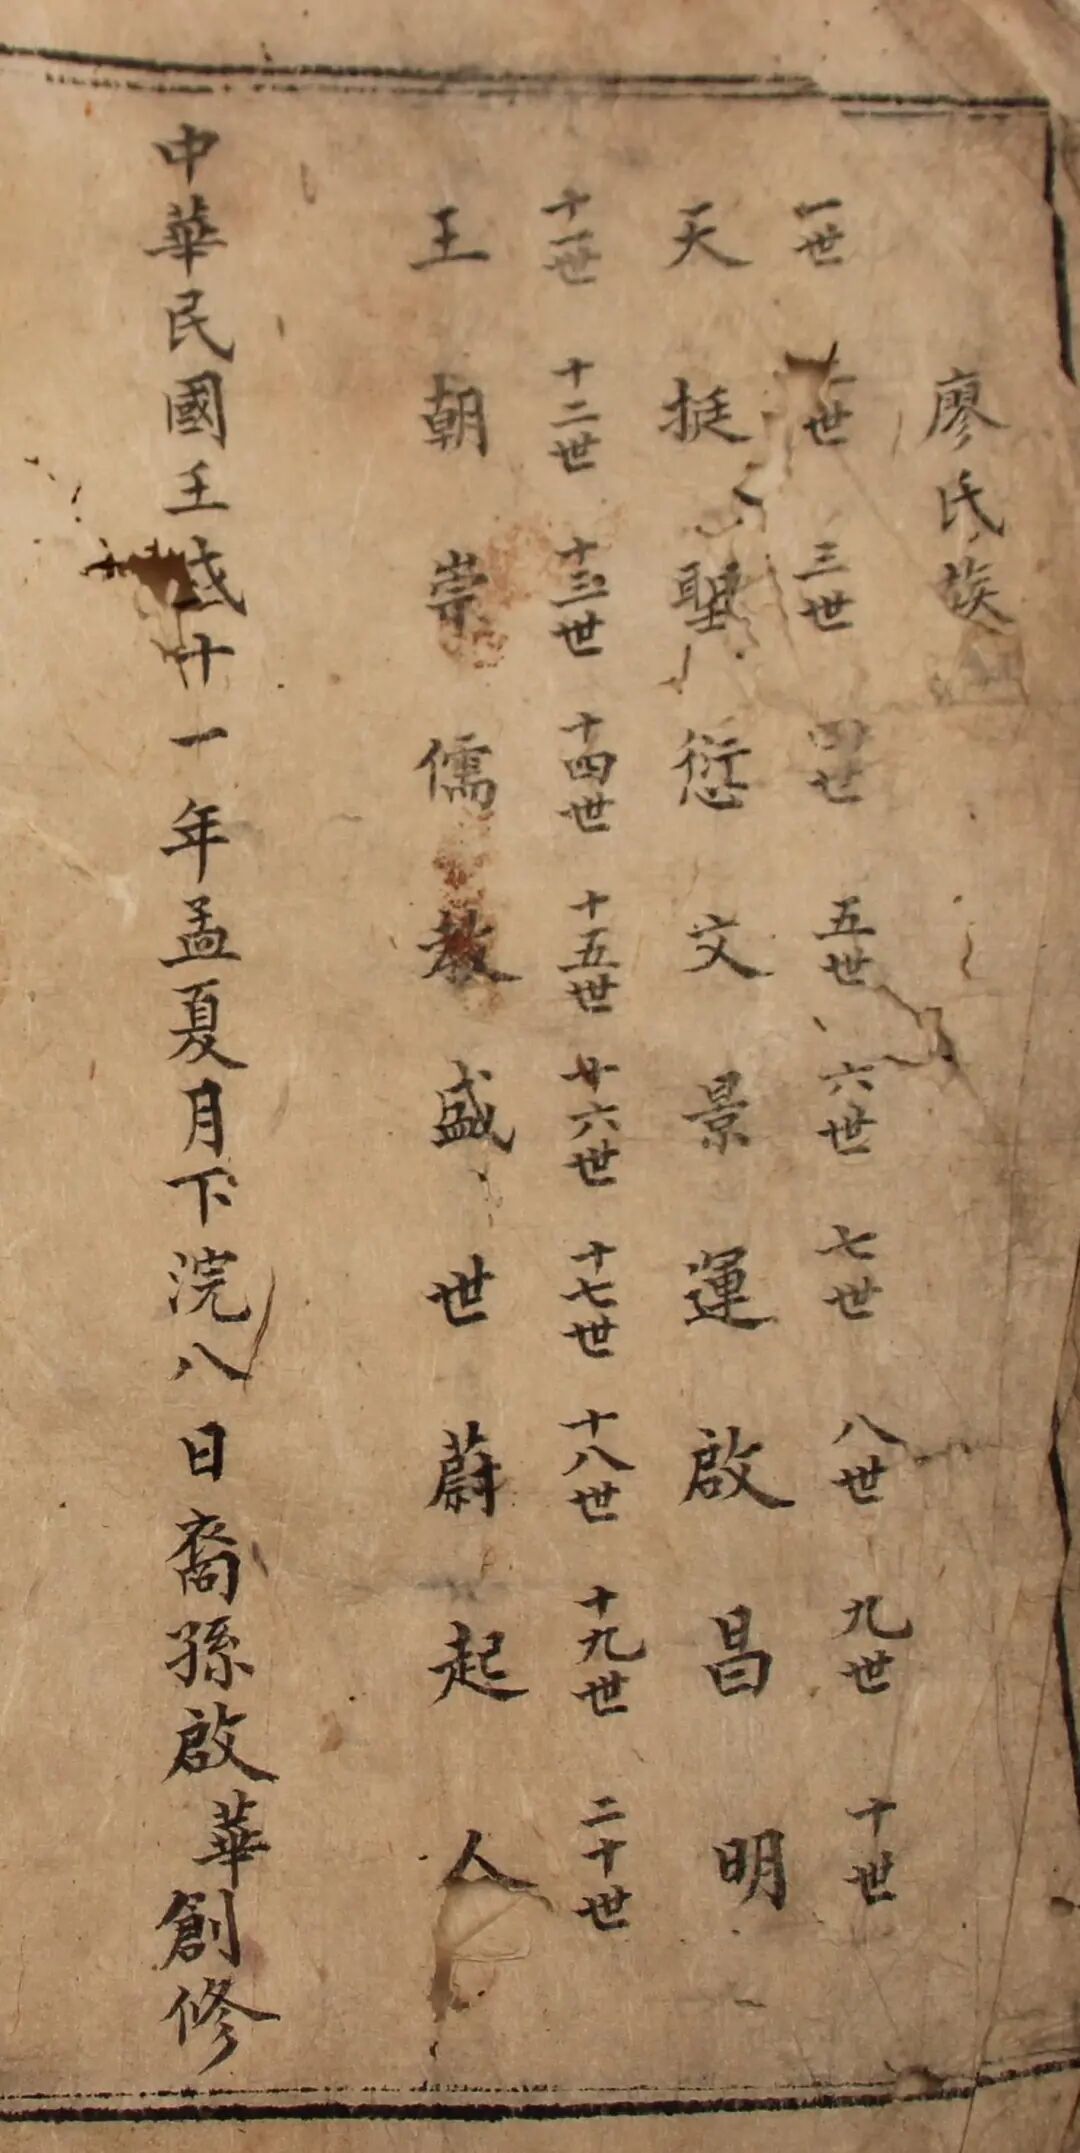 廖氏族
一世 二世 三世 四世 五世 六世 七世 八世 九世 十世
天挺聖愆文景運啟昌明
十一世 十二世 十三世 十四世 十五世 廿六世 十七世 十八世 十九世 二十世
王朝崇儒教盛世蔚起人
中華民國壬戌十一年孟夏月下浣八日裔孫啟華創修